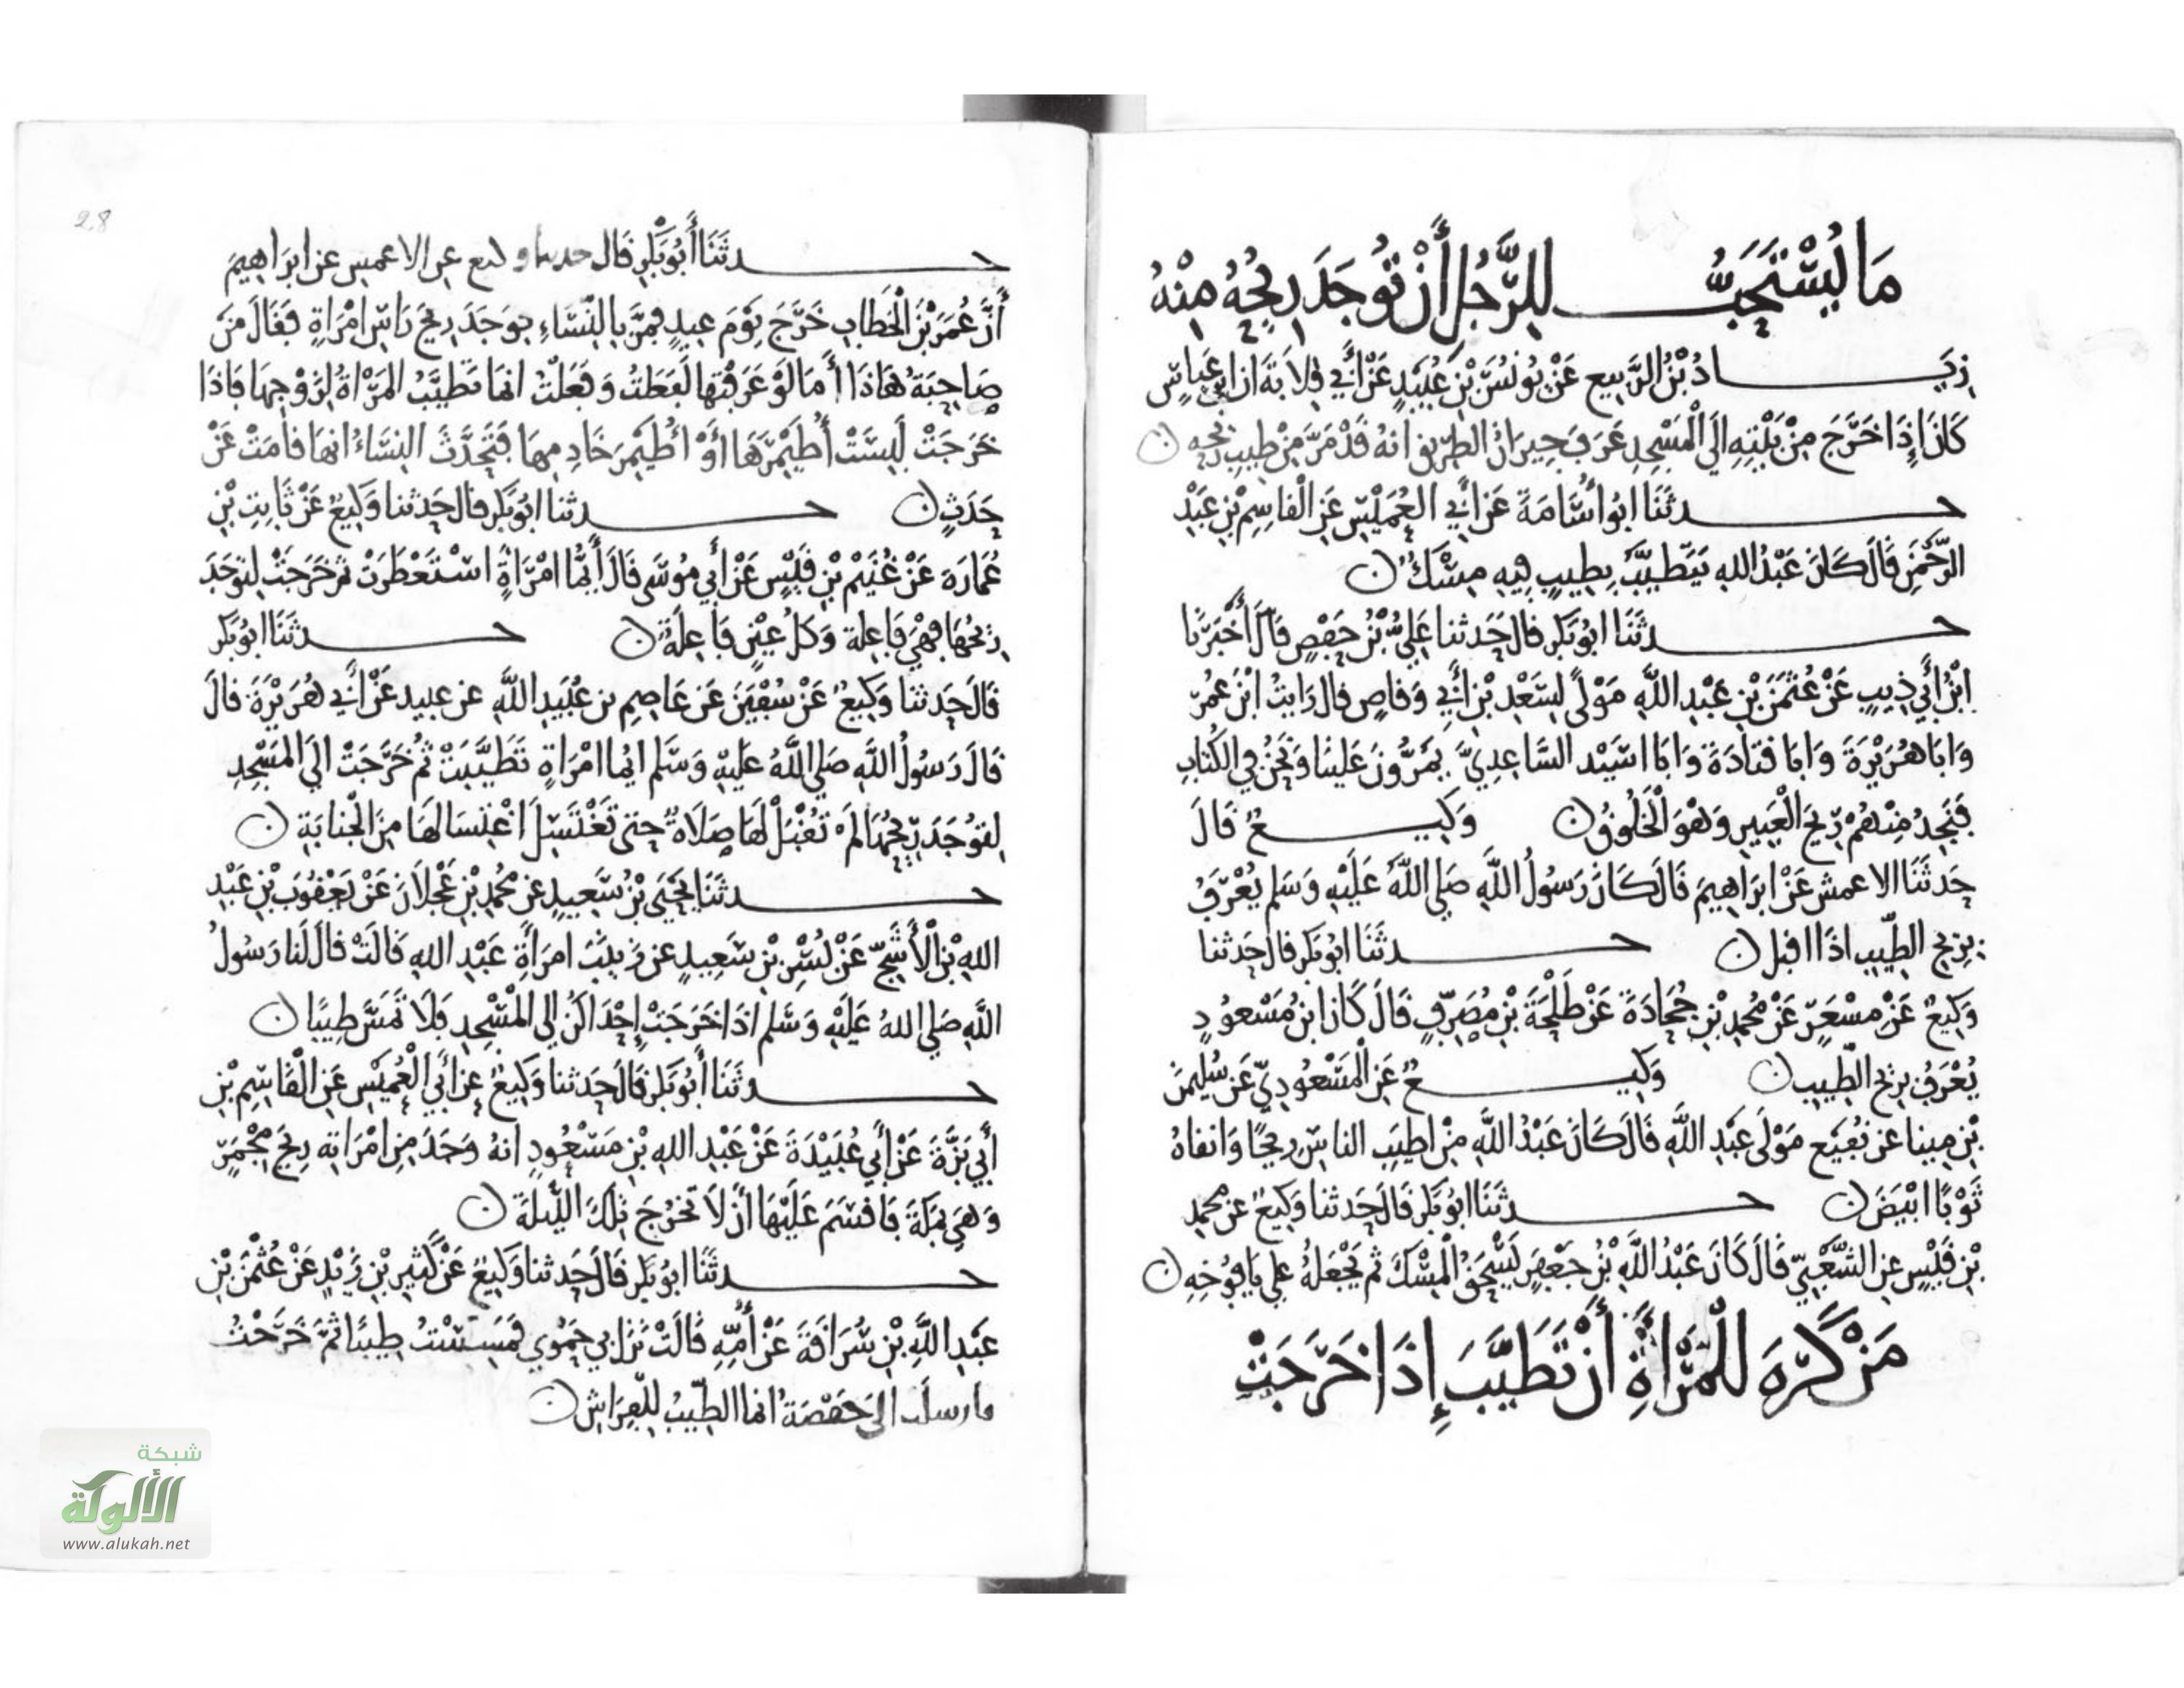 مَا يُسْتَحَبُّ لِلرَّجُلِ أَنْ تُوجَدَ رِيحُهُ مِنْهُ
زِيَادُ بْنُ الرَّبِيعِ عَنْ يُونُسَ بْنِ عُبَيْدٍ عَنْ أَبِي قِلَابَةَ ان ابن عَبَّاسٍ
كَانَ إِذَا خَرَجَ مِنْ بَيْتِهِ إِلَى الْمَسْجِدِ عَرَفَ جِيرَانُ الطَّرِيقِ انَهُ قَدْ مَرَّ مِنْ طِيبِ رِيحِهِ ن
حدثَنَا ابُو أُسَامَةَ عَنْ أَبِي الْعُمَيْسِ عَنِ الْقَاسِمِ بْنِ عَبْدِ
الرَّحْمَنِ قَالَ كَانَ عَبْدُ اللهِ يَتَطَيَّبُ بِطِيبٍ فِيهِ مِسْكٌ ن
حدثَنَا ابُو بَكْرٍ قَالَ حَدثنا عَلِيُّ بْنُ حَفْصٍ قَالَ أَخْبَرَنَا
ابْنُ أَبِي ذِيبٍ عَنْ عُثْمَنَ بْنِ عَبْدِ اللَّهِ مَوْلًى لِسَعْدِ بْنِ أَبِي وَقاصٍ قَالَ رَايْتُ ابْنَ عُمَرَ
وَابَا هُرَيْرَةَ وَابَا قَتَادَةَ وَابَا اسَيْد السَّاعِدِيَّ يَمُرُّونَ عَلَيْنَا وَنَحْنُ فِي الْكُتَّابِ
فَنَجِدُ مِنْهُمْ رِيحَ الْعَبِيرِ وَهْوَ الْخَلُوقُ ن وَكِيعٌ قَالَ
حَدثَنَا الاعمش عَنْ ابْرَاهِيمَ قَالَ كَانَ رَسُولُ اللَّهِ صَلى اللَّهُ عَلَيْهِ وَسَلم يُعْرَفُ
بِرِيحِ الطِّيبِ اذَا اقبل ن حدثَنَا ابُو بَكْرٍ قَالَ حَدثنا
وَكِيعٌ عَنْ مِسْعَرٍ عَنْ مُحمدِ بْنِ جُحَادَةَ عَنْ طَلْحَةَ بْنِ مُصَرِّفٍ قَالَ كَانَ ابنُ مَسْعُودٍ
يُعْرَفُ بِرِيحِ الطِّيبِ ن وَكِيعٌ عَنِ الْمَسْعُودِيِّ عَن سُلَيْمنَ
بْنِ مِينا عن نُفَيْعٍ مَوْلَى عَبْدِ اللَّهِ قَالَ كَانَ عَبْدُ اللَّهِ مِنْ اطيَبِ الناسِ رِيحًا وَانقاهُ
ثَوْبًا ابْيَضَ ن حدثَنَا ابُو بَكْرٍ قَالَ حَدثنا وَكِيعٌ عن محمدِ
بْنِ قَيْسٍ عنِ الشَّعْبِيِّ قَالَ كَانَ عَبْدُ اللَّهِ بْنُ جَعْفَرٍ يَسْحَقُ الْمِسْكَ ثم يَجْعَلُهُ على يَافُوخِهِ ن
مَنْ كَرِهَ لِلْمَرْأَةِ أَنْ تَطَيَّبَ إِذَا خَرَجَتْ
28
حدثَنَا أَبُو بَكْرٍ قَالَ حدثنا وكيع عن الاعمش عن ابرَاهِيمَ
أَنَّ عُمَرَ بْنَ الْخَطابِ خَرَجَ يَوْمَ عِيدٍ فَمَرَّ بِالنِّسَاءِ فَوَجَدَ رِيحَ رَاسِ امْرَاةٍ فَقَالَ مَنْ
صَاحِبَةُ هَاذَا أَمَا لَوْ عَرَفْتُهَا لَفَعَلْتُ وَفَعَلْتُ انمَا تَطَيَّبُ الْمَرْأَةُ لِزَوْجِهَا فَاذَا
خَرَجَتْ لَبِسَتْ أُطَيْمِرَهَا أَوْ أُطَيْمِرَ خَادِمِهَا فَتَحَدَّثَ النِسَاءُ انهَا قَامَتْ عَنْ
حَدَثٍ ن حدثنا ابُو بَكْرٍ قَالَ حَدثنا وَكِيعٌ عَنْ ثَابِتِ بْنِ
عُمَارَةَ عَنْ غُنَيْمِ بْنِ قَيْسٍ عَنْ أَبِي مُوسَى قَالَ أَيُّمَا امْرَأَةٍ اسْتَعْطَرَتْ ثمَّ خَرَجَتْ لِتوجَدَ
رِيحُهَا فَهْيَ فَاعِلَة وَكلُّ عَيْنٍ فَاعِلَةٌ ن حدثَنَا ابُو بَكْرٍ
قَالَ حَدثنا وَكِيعٌ عَنْ سُفْيَنَ عَنْ عَاصِمِ بن عُبَيْدِ اللَّهِ عن عبيد عَنْ أَبِي هُرَيْرَةَ قَالَ
قَالَ رَسُولُ اللَّهِ صَلى اللَّهُ عَلَيْهِ وَسَلم ايُما امْرَاةٍ تَطَيَّبَتْ ثُمَّ خَرَجَتْ الَى الْمَسْجِدِ
لِتُوجَدَ رِيحُهَا لَمْ تُقْبَلْ لَهَا صَلَاةٌ حَتى تَغْتَسِلَ اغْتِسَالهَا مِنَ الْجنابَةِ ن
حدثَنَا يَحْيَى بْنُ سَعِيدٍ عن مُحمدِ بْنِ عَجْلَانَ عَنْ يَعْقُوبَ بْنِ عَبْدِ
اللهِ بْنِ الْأَشَجِّ عَنْ بُسْرِ بْنِ سَعِيدٍ عن زَيْنَبَ امرَأَةِ عَبْدِ اللهِ قَالَتْ قَالَ لَنا رَسُولُ
اللَّهِ صَلى اللهُ عَلَيْهِ وَسَلم اذَا خَرَجَتْ إِحْدَاكُنَّ إِلى الْمَسْجِدِ فَلَا تَمَسَّ طِيبًا ن
حدثَنَا أَبُو بَكْرٍ قَالَ حَدثنا وَكِيعٌ عن أَبِي الْعُمَيْسِ عَنِ الْقَاسِمِ بْنِ
أَبِي بَزَّةَ عَنْ أَبِي عُبَيْدَةَ عَنْ عَبْدِ اللهِ بْنِ مَسْعُودٍ انهُ وَجَدَ مِنِ امْرَاتِهِ رِيحَ مِجْمَرٍ
وَهْيَ بِمَكةَ فَاقسَمَ عَلَيْهَا أَنْ لَا تخرُجَ تِلْكَ اللَّيْلَةَ ن
حدثَنَا ابُو بَكْرٍ قَالَ حَدثنا وَكِيعٌ عَنْ كَثِيرِ بْنِ زَيْدٍ عَنْ عُثْمَنَ بْنِ
عَبْدِ اللَّهِ بْنِ سُرَاقَةَ عَنْ أُمِّهِ قَالَتْ نَزَلَ بِي حَمْوِي فَمَسِسْتُ طِيبًا ثُمَّ خَرَجْتُ
فارسلت الى حَفْصَةُ انما الطِّيبُ لِلْفِرَاشِ ن
شبكة
الألوكة
www.alukah.net